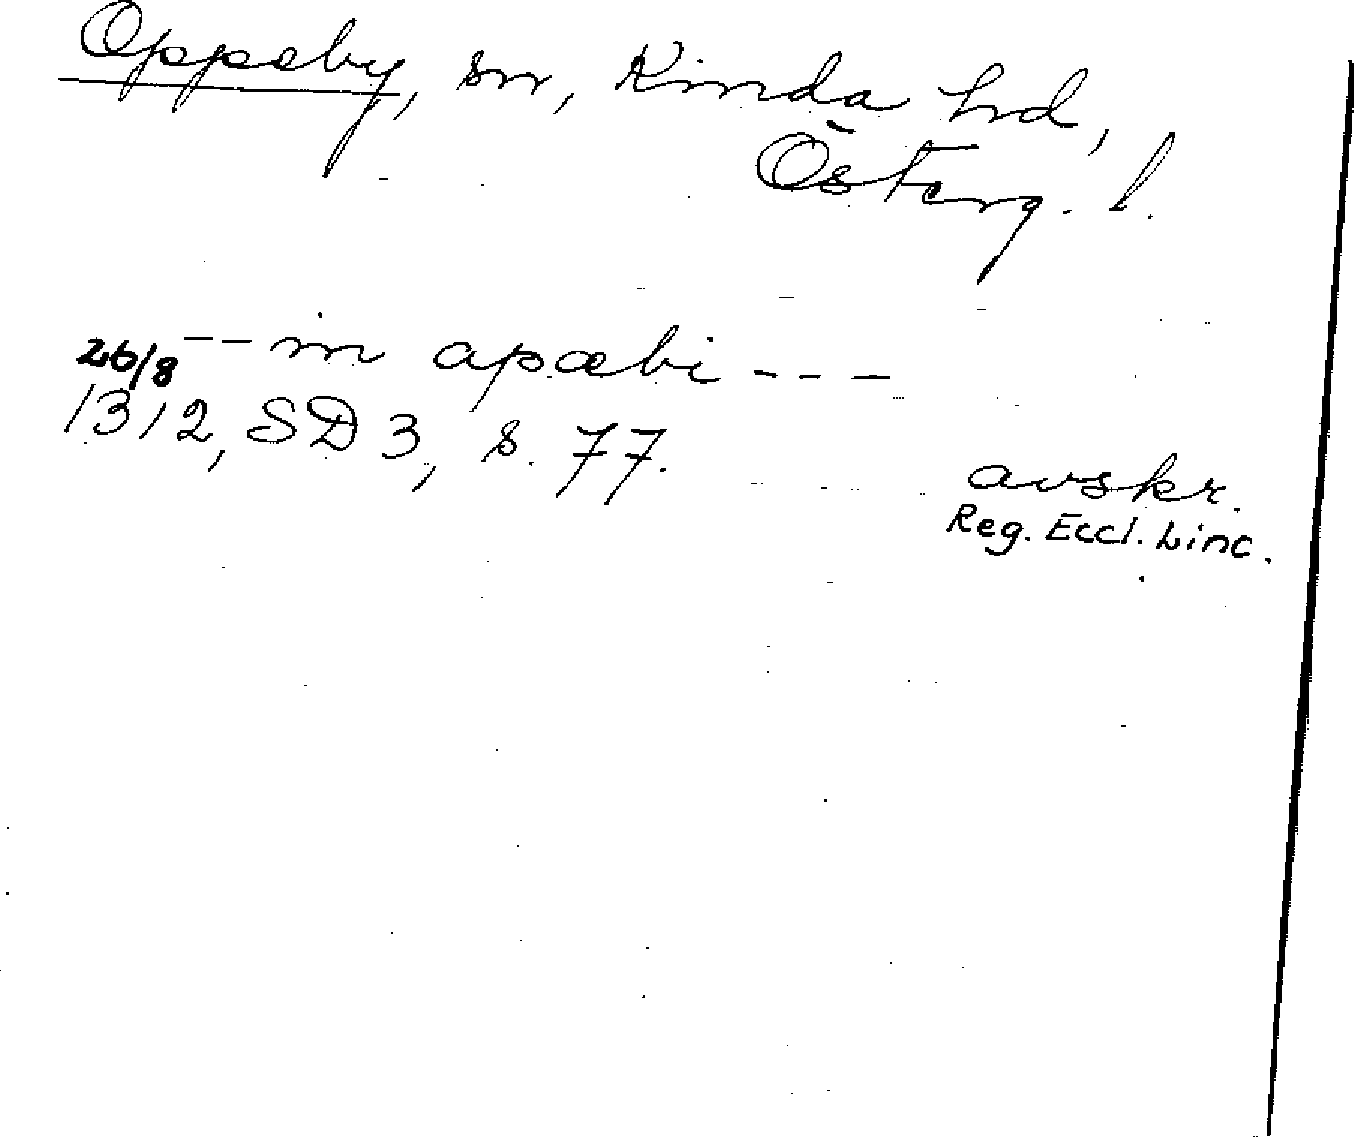 Oppeby, sn, Kinda hd,
Österg. l.
26/8 -- in apæbi ---
1312, SD 3, s. 77.
avskr.
Reg. Eccl. Linc.